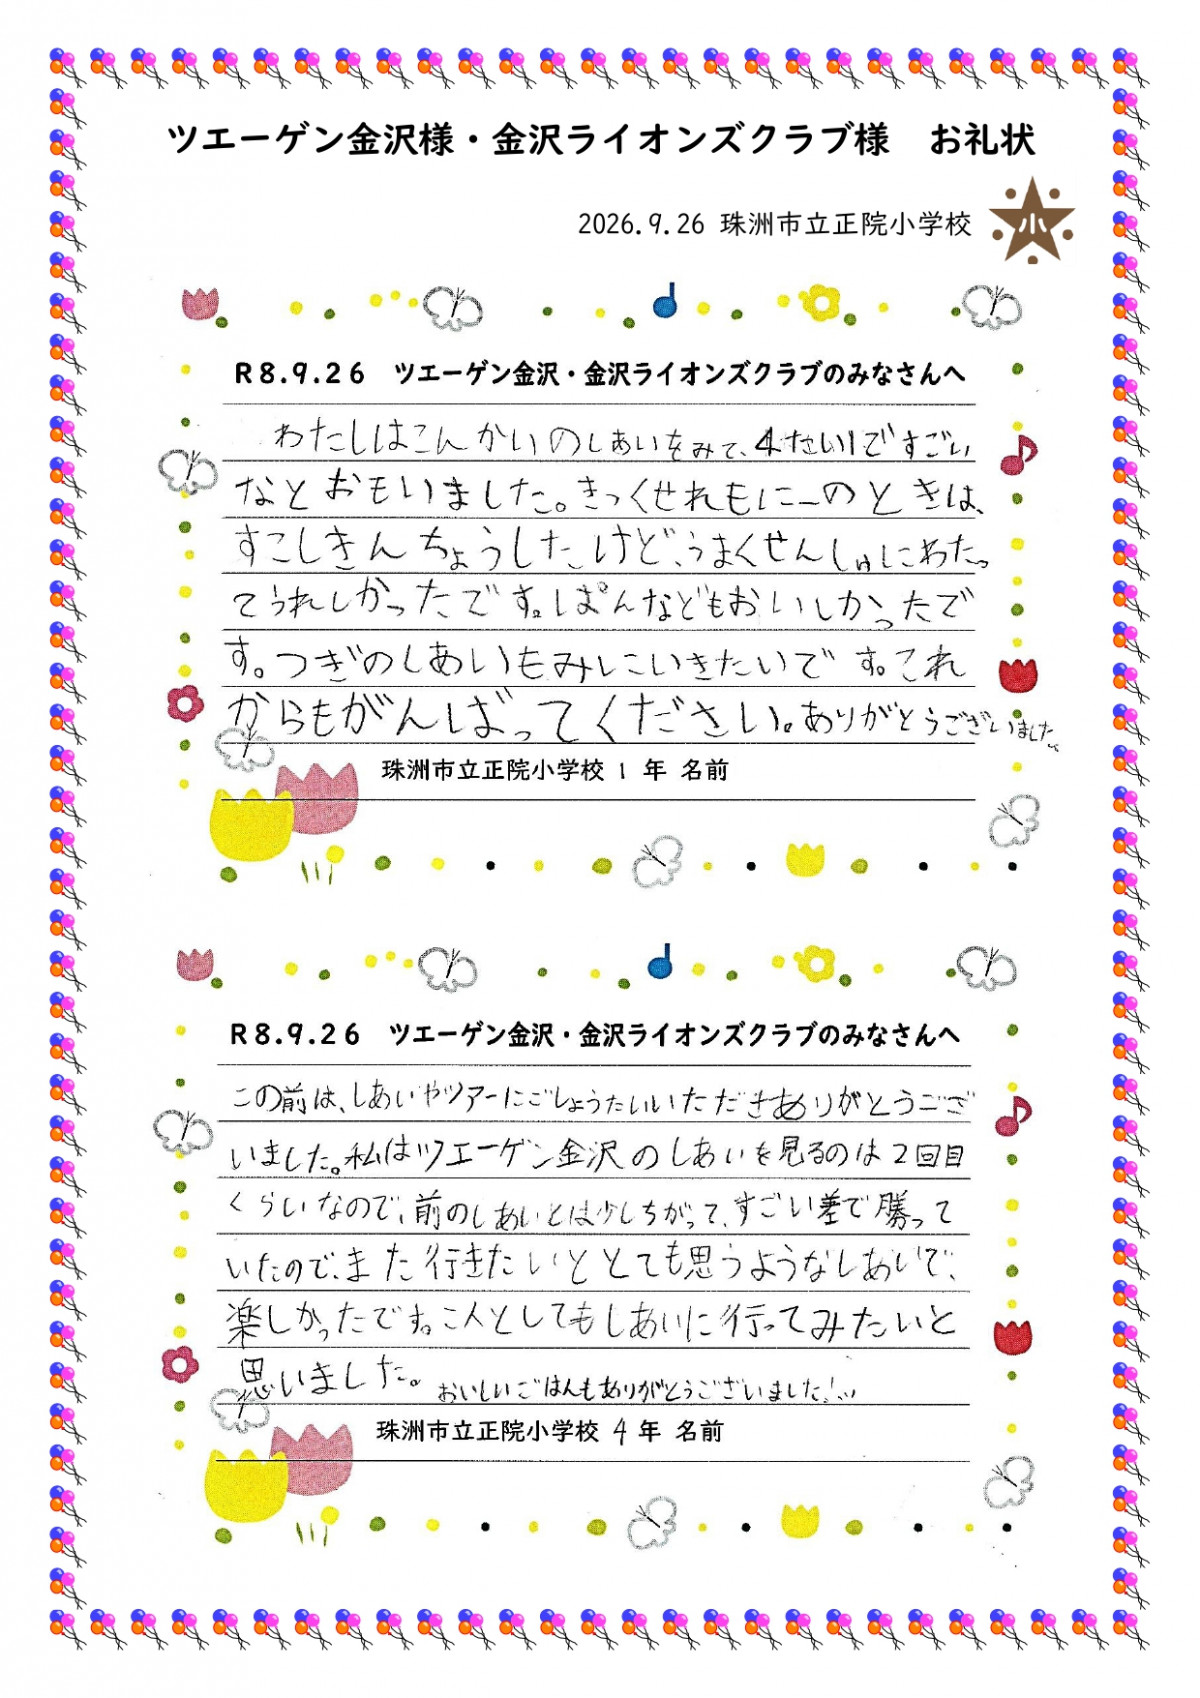 ツエーゲン金沢様・金沢ライオンズクラブ様　お礼状
2026.9.26 珠洲市立正院小学校
小
R8.9.26　ツエーゲン金沢・金沢ライオンズクラブのみなさんへ
わたしはこんかいのしあいをみて、4たい1ですごい
なとおもいました。きっくせれもにーのときは、
すこしきんちょうしたけど、うまくせんしゅにわたっ
てうれしかったです。ぱんなどもおいしかったで
す。つぎのしあいもみにいきたいです。これ
からもがんばってください。ありがとうございました。
珠洲市立正院小学校 1 年 名前
R8.9.26　ツエーゲン金沢・金沢ライオンズクラブのみなさんへ
この前は、しあいやツアーにごしょうたいいただきありがとうござ
いました。私はツエーゲン金沢のしあいを見るのは2回目
くらいなので、前のしあいとは少しちがって、すごい差で勝って
いたので、また行きたいととても思うようなしあいで、
楽しかったです。こ人としてもしあいに行ってみたいと
思いました。おいしいごはんもありがとうございました!
珠洲市立正院小学校 4 年 名前